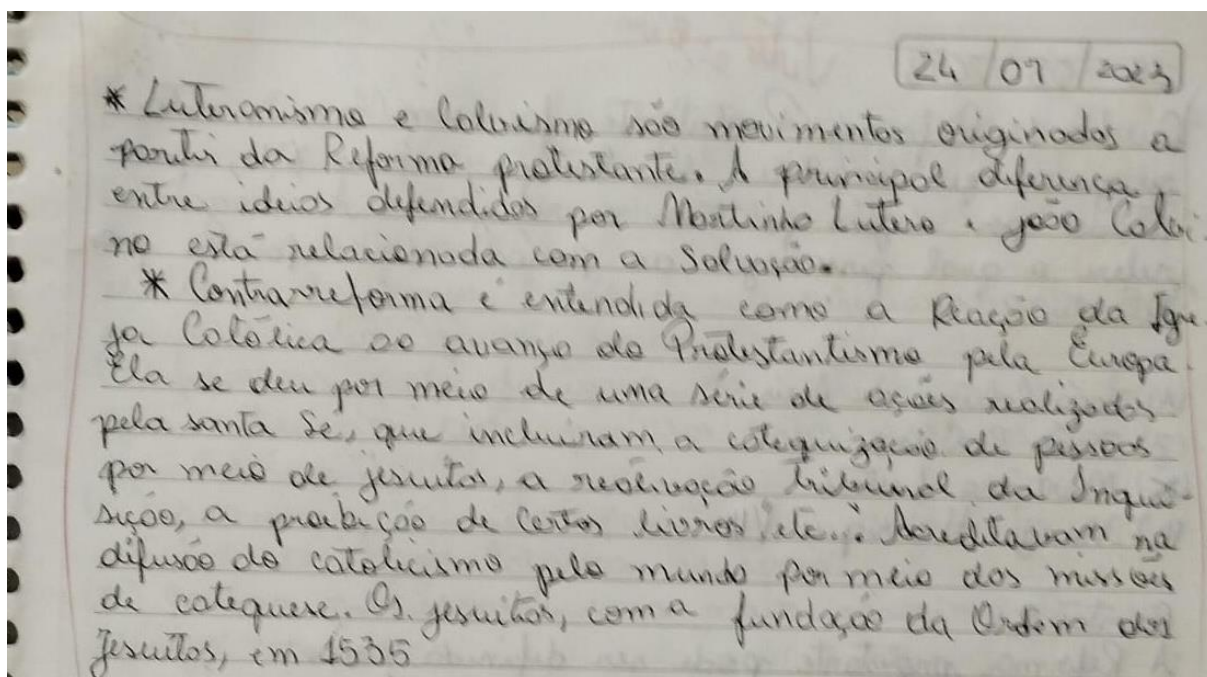 24 / 07 / 2023
* Luteranismo e Calvinismo são movimentos originados a
partir da Reforma protestante. A principal diferença
entre ideias defendidas por Martinho Lutero e joão Calvi-
no está relacionada com a Salvação.
* Contrarreforma é entendida como a Reação da Igre-
ja Católica ao avanço do Protestantismo pela Europa.
Ela se deu por meio de uma série de ações realizadas
pela santa Sé, que incluiram a catequização de pessoas
por meio de jesuitas, a reativação tribunal da Inqui-
sição, a proibição de certos livros, etc. Acreditavam na
difusão do catolicismo pelo mundo por meio das missões
de catequese. Os jesuitas, com a fundação da Ordem dos
Jesuitas, em 1535